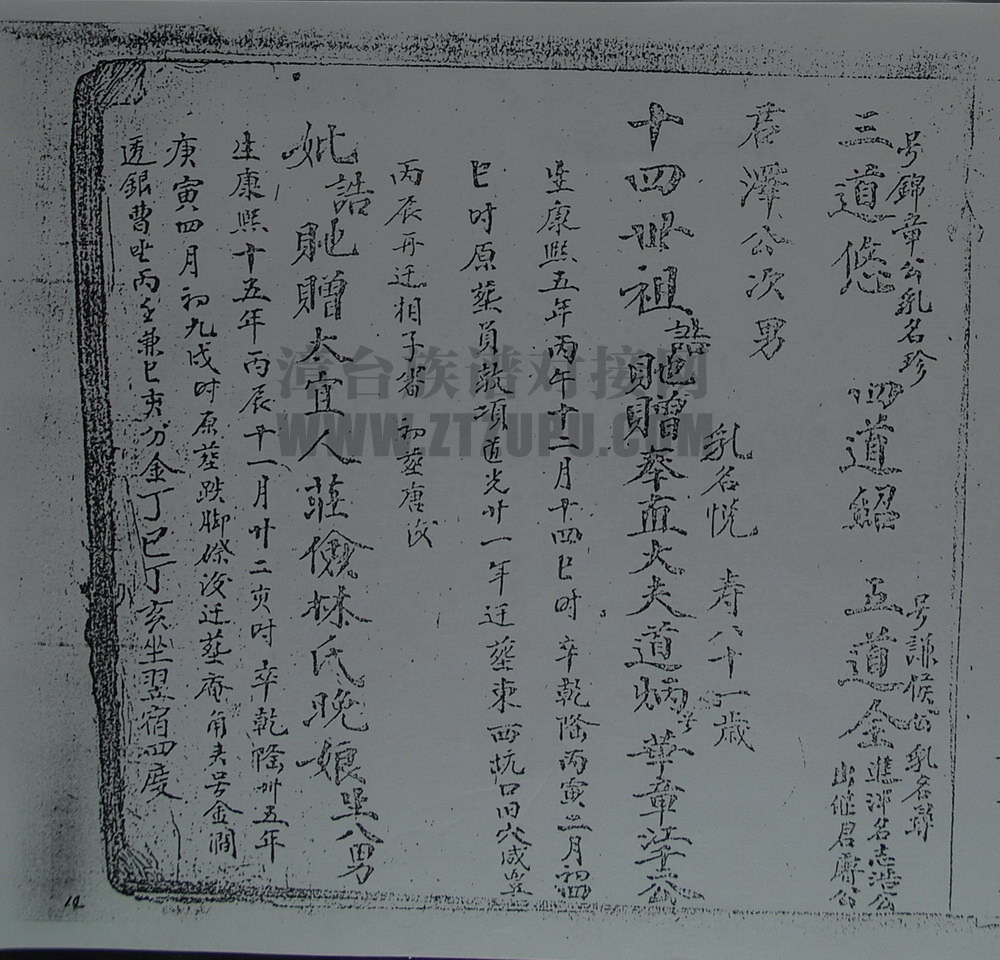 号錦章公乳名珍
三道悠 四道紹 五道金
号謙候公乳名
進泮名志浩公
出継君爵公
君澤公次男
十四世祖誥貤贈奉直大夫道炳号華章江公
乳名悦 寿八十一歳
生康熙五年丙午十二月十四巳时卒乾隆丙寅二月初四
巳时原葬員墩項道光廿一年迁塟東西坑口田穴咸豊
丙辰再迁相子畨初塟唐後
妣誥貤贈太宜人莊儉林氏晚娘生八男
生康熙十五年丙辰十一月廿二亥时卒乾隆卅五年
庚寅四月初九戌时原塟跌脚磜後迁塟庵角夫号金澗
透銀曹坐丙壬兼巳亥分金丁巳丁亥坐翌宿四度
漳台族谱对接网
WWW.ZTZUPU.COM
12